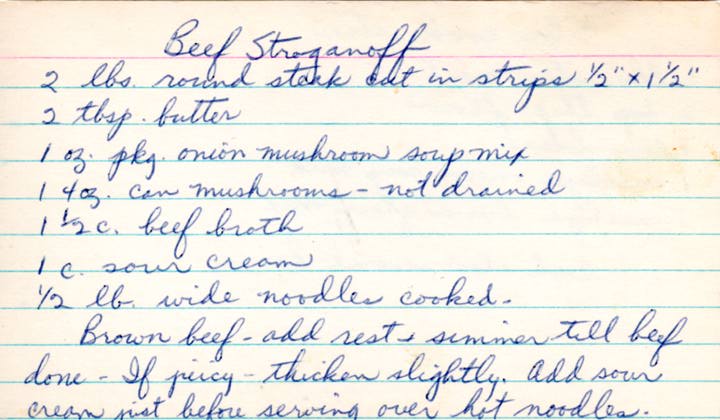 Beef Stroganoff
2 lbs. round steak cut in strips 1/2" x 1 1/2"
2 tbsp. butter
1 oz. pkg. onion mushroom soup mix
1 4oz. can mushrooms - not drained
1 1/2 c. beef broth
1 c. sour cream
1/2 lb. wide noodles cooked.
Brown beef - add rest + simmer till beef
done - If juicy - thicken slightly. Add sour
cream just before serving over hot noodles.